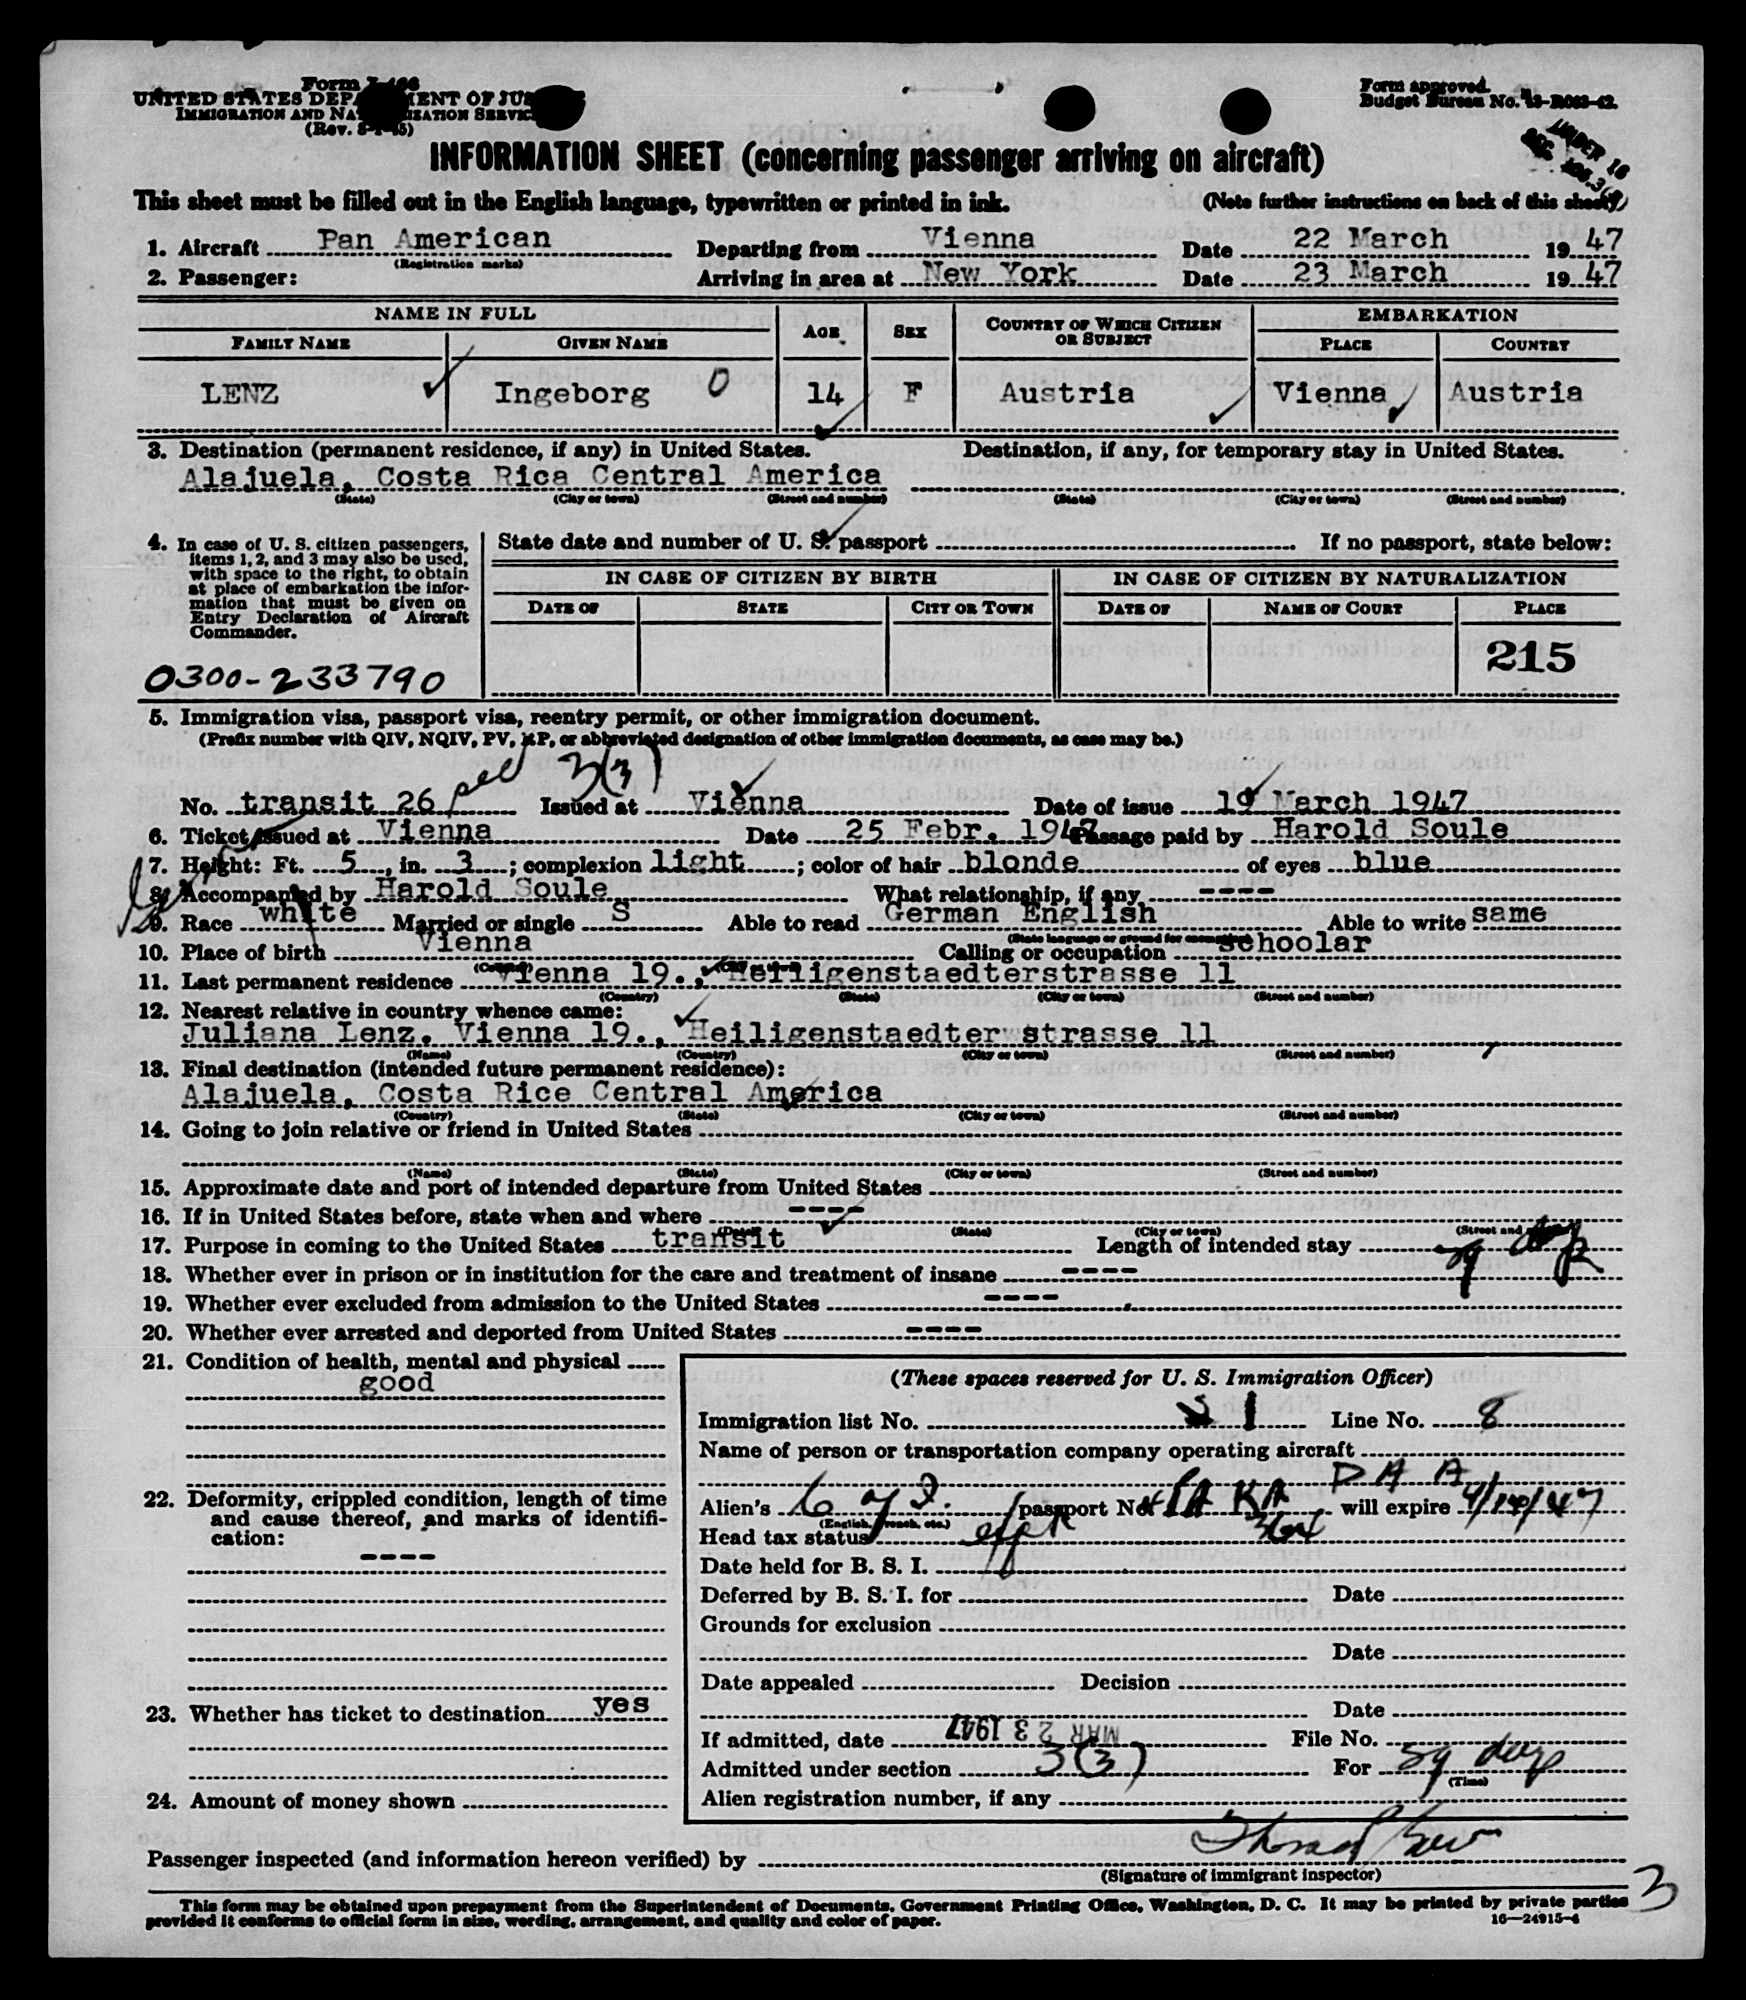 Form I-466
UNITED STATES DEPARTMENT OF JUSTICE
IMMIGRATION AND NATURALIZATION SERVICE
(Rev. 8-1-45)
Form approved.
Budget Bureau No. 43-R063-42.
UNDER 16
SEC 108.3(B)
INFORMATION SHEET (concerning passenger arriving on aircraft)
This sheet must be filled out in the English language, typewritten or printed in ink. (Note further instructions on back of this sheet)
1. Aircraft Pan American Departing from Vienna Date 22 March 1947
(Registration marks)
2. Passenger: Arriving in area at New York Date 23 March 1947
NAME IN FULL AGE SEX COUNTRY OF WHICH CITIZEN OR SUBJECT EMBARKATION
FAMILY NAME GIVEN NAME PLACE COUNTRY
LENZ Ingeborg 0 14 F Austria Vienna Austria
3. Destination (permanent residence, if any) in United States. Destination, if any, for temporary stay in United States.
Alajuela, Costa Rica Central America
(State) (City or town) (Street and number) (State) (City or town) (Street and number)
4. In case of U. S. citizen passengers,
items 1, 2, and 3 may also be used,
with space to the right, to obtain
at place of embarkation the infor-
mation that must be given on
Entry Declaration of Aircraft
Commander.
0300-233790
State date and number of U. S. passport If no passport, state below:
IN CASE OF CITIZEN BY BIRTH IN CASE OF CITIZEN BY NATURALIZATION
DATE OF STATE CITY OR TOWN DATE OF NAME OF COURT PLACE
215
5. Immigration visa, passport visa, reentry permit, or other immigration document.
(Prefix number with QIV, NQIV, PV, RP, or abbreviated designation of other immigration documents, as case may be.)
3(3)
No. transit 26 Issued at Vienna Date of issue 19 March 1947
6. Ticket issued at Vienna Date 25 Febr. 1947 Passage paid by Harold Soule
7. Height: Ft. 5, in. 3; complexion light; color of hair blonde of eyes blue
8. Accompanied by Harold Soule What relationship, if any ----
9. Race white Married or single S Able to read German English Able to write same
(State language or ground for exemption)
10. Place of birth Vienna Calling or occupation schoolar
(Country) (City or town)
11. Last permanent residence Vienna 19., Heiligenstaedterstrasse 11
(Country) (State) (City or town) (Street and number)
12. Nearest relative in country whence came:
Juliana Lenz. Vienna 19., Heiligenstaedter strasse 11
(Name) (Country) (City or town) (Street and number)
13. Final destination (intended future permanent residence):
Alajuela, Costa Rice Central America
(Country) (State) (City or town) (Street and number)
14. Going to join relative or friend in United States
(Name) (State) (City or town) (Street and number)
15. Approximate date and port of intended departure from United States
16. If in United States before, state when and where ----
(Date) (State) (City or town) (Street and number)
17. Purpose in coming to the United States transit Length of intended stay
18. Whether ever in prison or in institution for the care and treatment of insane ----
19. Whether ever excluded from admission to the United States ----
20. Whether ever arrested and deported from United States ----
21. Condition of health, mental and physical
good
22. Deformity, crippled condition, length of time
and cause thereof, and marks of identifi-
cation:
----
23. Whether has ticket to destination yes
24. Amount of money shown
(These spaces reserved for U. S. Immigration Officer)
Immigration list No. 1 Line No. 8
Name of person or transportation company operating aircraft
P A A
Alien's passport No. will expire
(English, French, etc.)
Head tax status
Date held for B. S. I.
Deferred by B. S. I. for Date
Grounds for exclusion
Date
Date appealed Decision
Date
If admitted, date MAR 23 1947 File No.
Admitted under section 3(3) For 59 days
(Time)
Alien registration number, if any
Passenger inspected (and information hereon verified) by
(Signature of immigrant inspector)
3
This form may be obtained upon prepayment from the Superintendent of Documents, Government Printing Office, Washington, D. C. It may be printed by private parties
provided it conforms to official form in size, wording, arrangement, and quality and color of paper.
16—24915-4